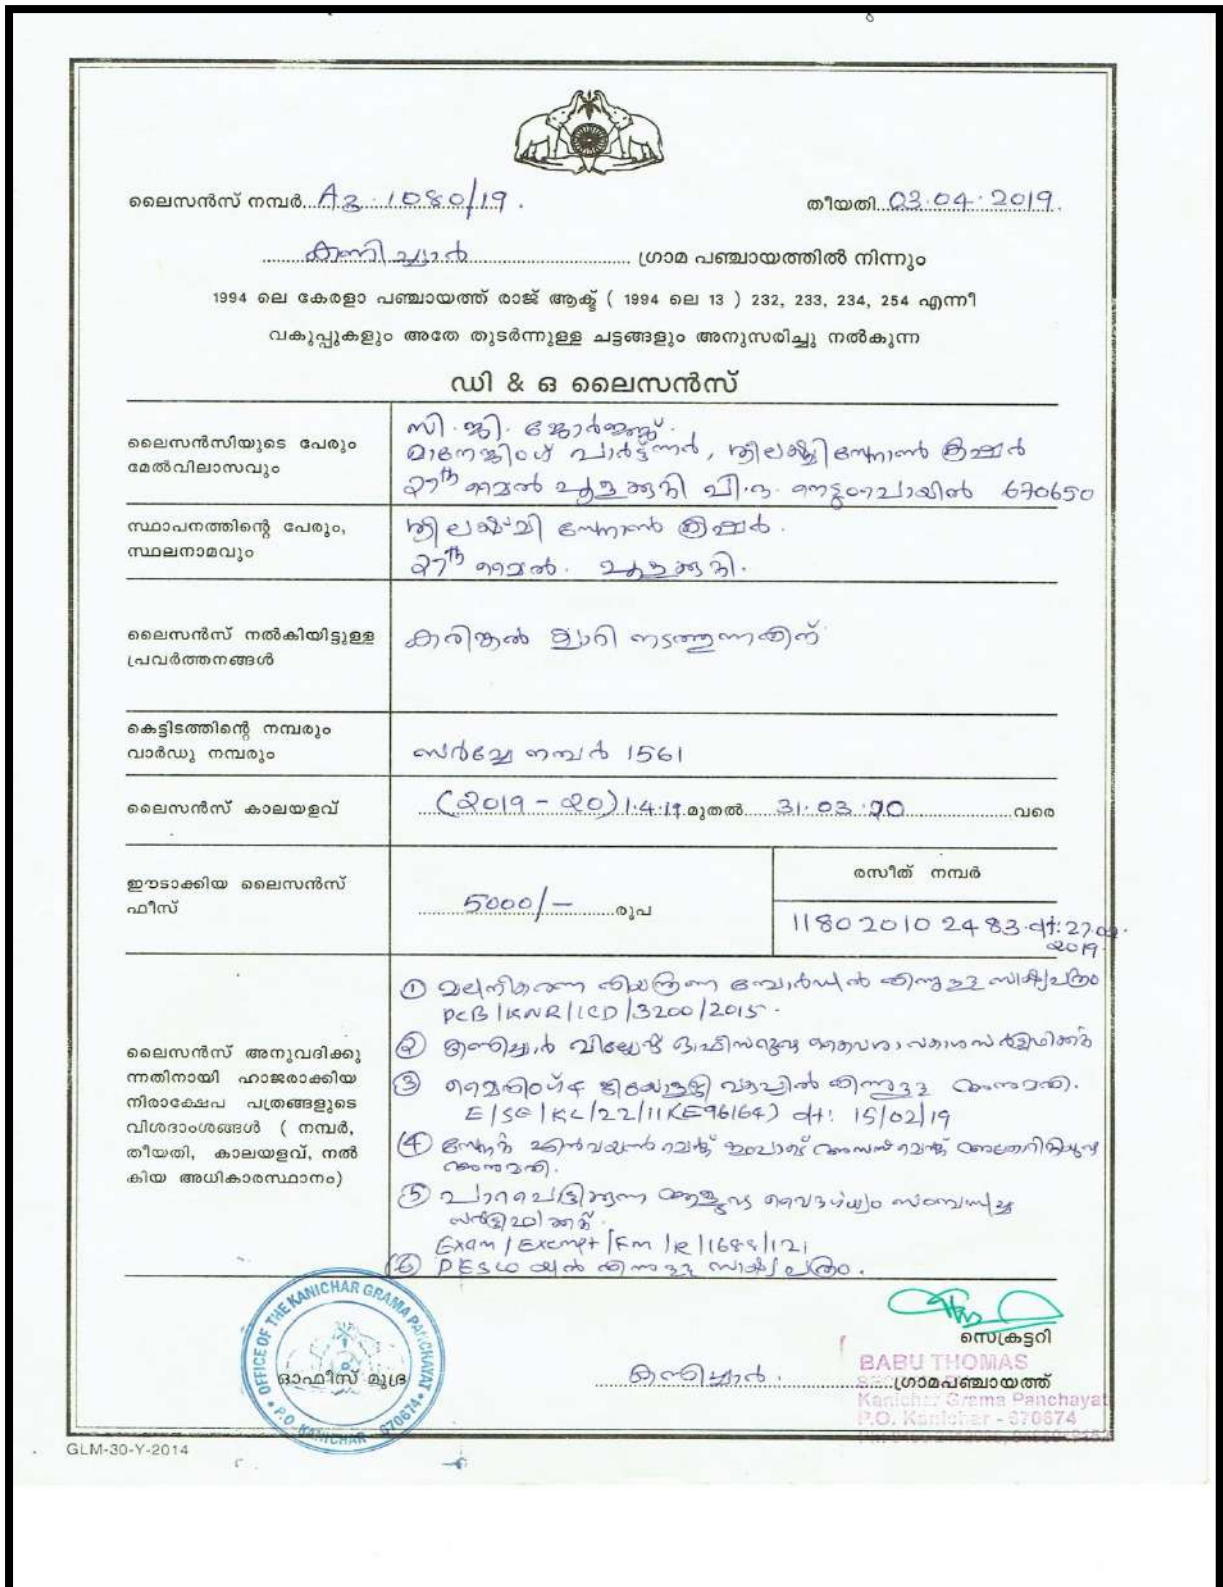 ലൈസൻസ് നമ്പർ A3-1080/19.
തീയതി 03.04.2019.
കണിച്ചാർ ഗ്രാമ പഞ്ചായത്തിൽ നിന്നും
1994 ലെ കേരളാ പഞ്ചായത്ത് രാജ് ആക്ട് ( 1994 ലെ 13 ) 232, 233, 234, 254 എന്നീ
വകുപ്പുകളും അതേ തുടർന്നുള്ള ചട്ടങ്ങളും അനുസരിച്ചു നൽകുന്ന
ഡി & ഒ ലൈസൻസ്
ലൈസൻസിയുടെ പേരും
മേൽവിലാസവും
സി.ജി. ജോർജ്ജ്.
മാനേജിംഗ് പാർട്ട്ണർ, ശ്രീലക്ഷ്മി സ്റ്റോൺ ക്രഷർ
27th മൈൽ പൂളക്കുറ്റി പി.ഒ. നെടുംപൊയിൽ 670650
സ്ഥാപനത്തിന്റെ പേരും,
സ്ഥലനാമവും
ശ്രീലക്ഷ്മി സ്റ്റോൺ ക്രഷർ.
27th മൈൽ. പൂളക്കുറ്റി.
ലൈസൻസ് നൽകിയിട്ടുള്ള
പ്രവർത്തനങ്ങൾ
കരിങ്കൽ ക്വാറി നടത്തുന്നതിന്
കെട്ടിടത്തിന്റെ നമ്പരും
വാർഡു നമ്പരും
സർവ്വേ നമ്പർ 1561
ലൈസൻസ് കാലയളവ്
(2019-20) 1.4.19 മുതൽ 31.03.20 വരെ
ഈടാക്കിയ ലൈസൻസ്
ഫീസ്
5000/- രൂപ
രസീത് നമ്പർ
118020102483 dt: 27.
2019
ലൈസൻസ് അനുവദിക്കു
ന്നതിനായി ഹാജരാക്കിയ
നിരാക്ഷേപ പത്രങ്ങളുടെ
വിശദാംശങ്ങൾ ( നമ്പർ,
തീയതി, കാലയളവ്, നൽ
കിയ അധികാരസ്ഥാനം)
① മലിനീകരണ നിയന്ത്രണ ബോർഡിൽ നിന്നുള്ള സാക്ഷ്യപത്രം
PCB/KNR/ICD/3200/2015.
② കണിച്ചാർ വില്ലേജ് ഓഫീസറുടെ കൈവശാവകാശ സർട്ടിഫിക്കറ്റ്
③ മൈനിംഗ് & ജിയോളജി വകുപ്പിൽ നിന്നുള്ള അനുമതി.
E/SE/KL/22/11(E96164) dt: 15/02/19
④ സ്റ്റേറ്റ് എൻവയൺമെന്റ് ഇംപാക്ട് അസസ്മെന്റ് അതോറിറ്റിയുടെ
അനുമതി.
⑤ പാറപൊട്ടിക്കുന്ന ആളുടെ വൈദഗ്ധ്യം സംബന്ധിച്ച
സർട്ടിഫിക്കറ്റ്.
Exam/Exempt/Fm/R/1688/121
⑥ PESO യിൽ നിന്നുള്ള സാക്ഷ്യപത്രം.
OFFICE OF THE KANICHAR GRAMA PANCHAYAT
P.O. KANICHAR - 670674
ഓഫീസ് മുദ്ര
സെക്രട്ടറി
BABU THOMAS
കണിച്ചാർ. ഗ്രാമപഞ്ചായത്ത്
Kanichar Grama Panchayat
P.O. Kanichar - 670674
GLM-30-Y-2014